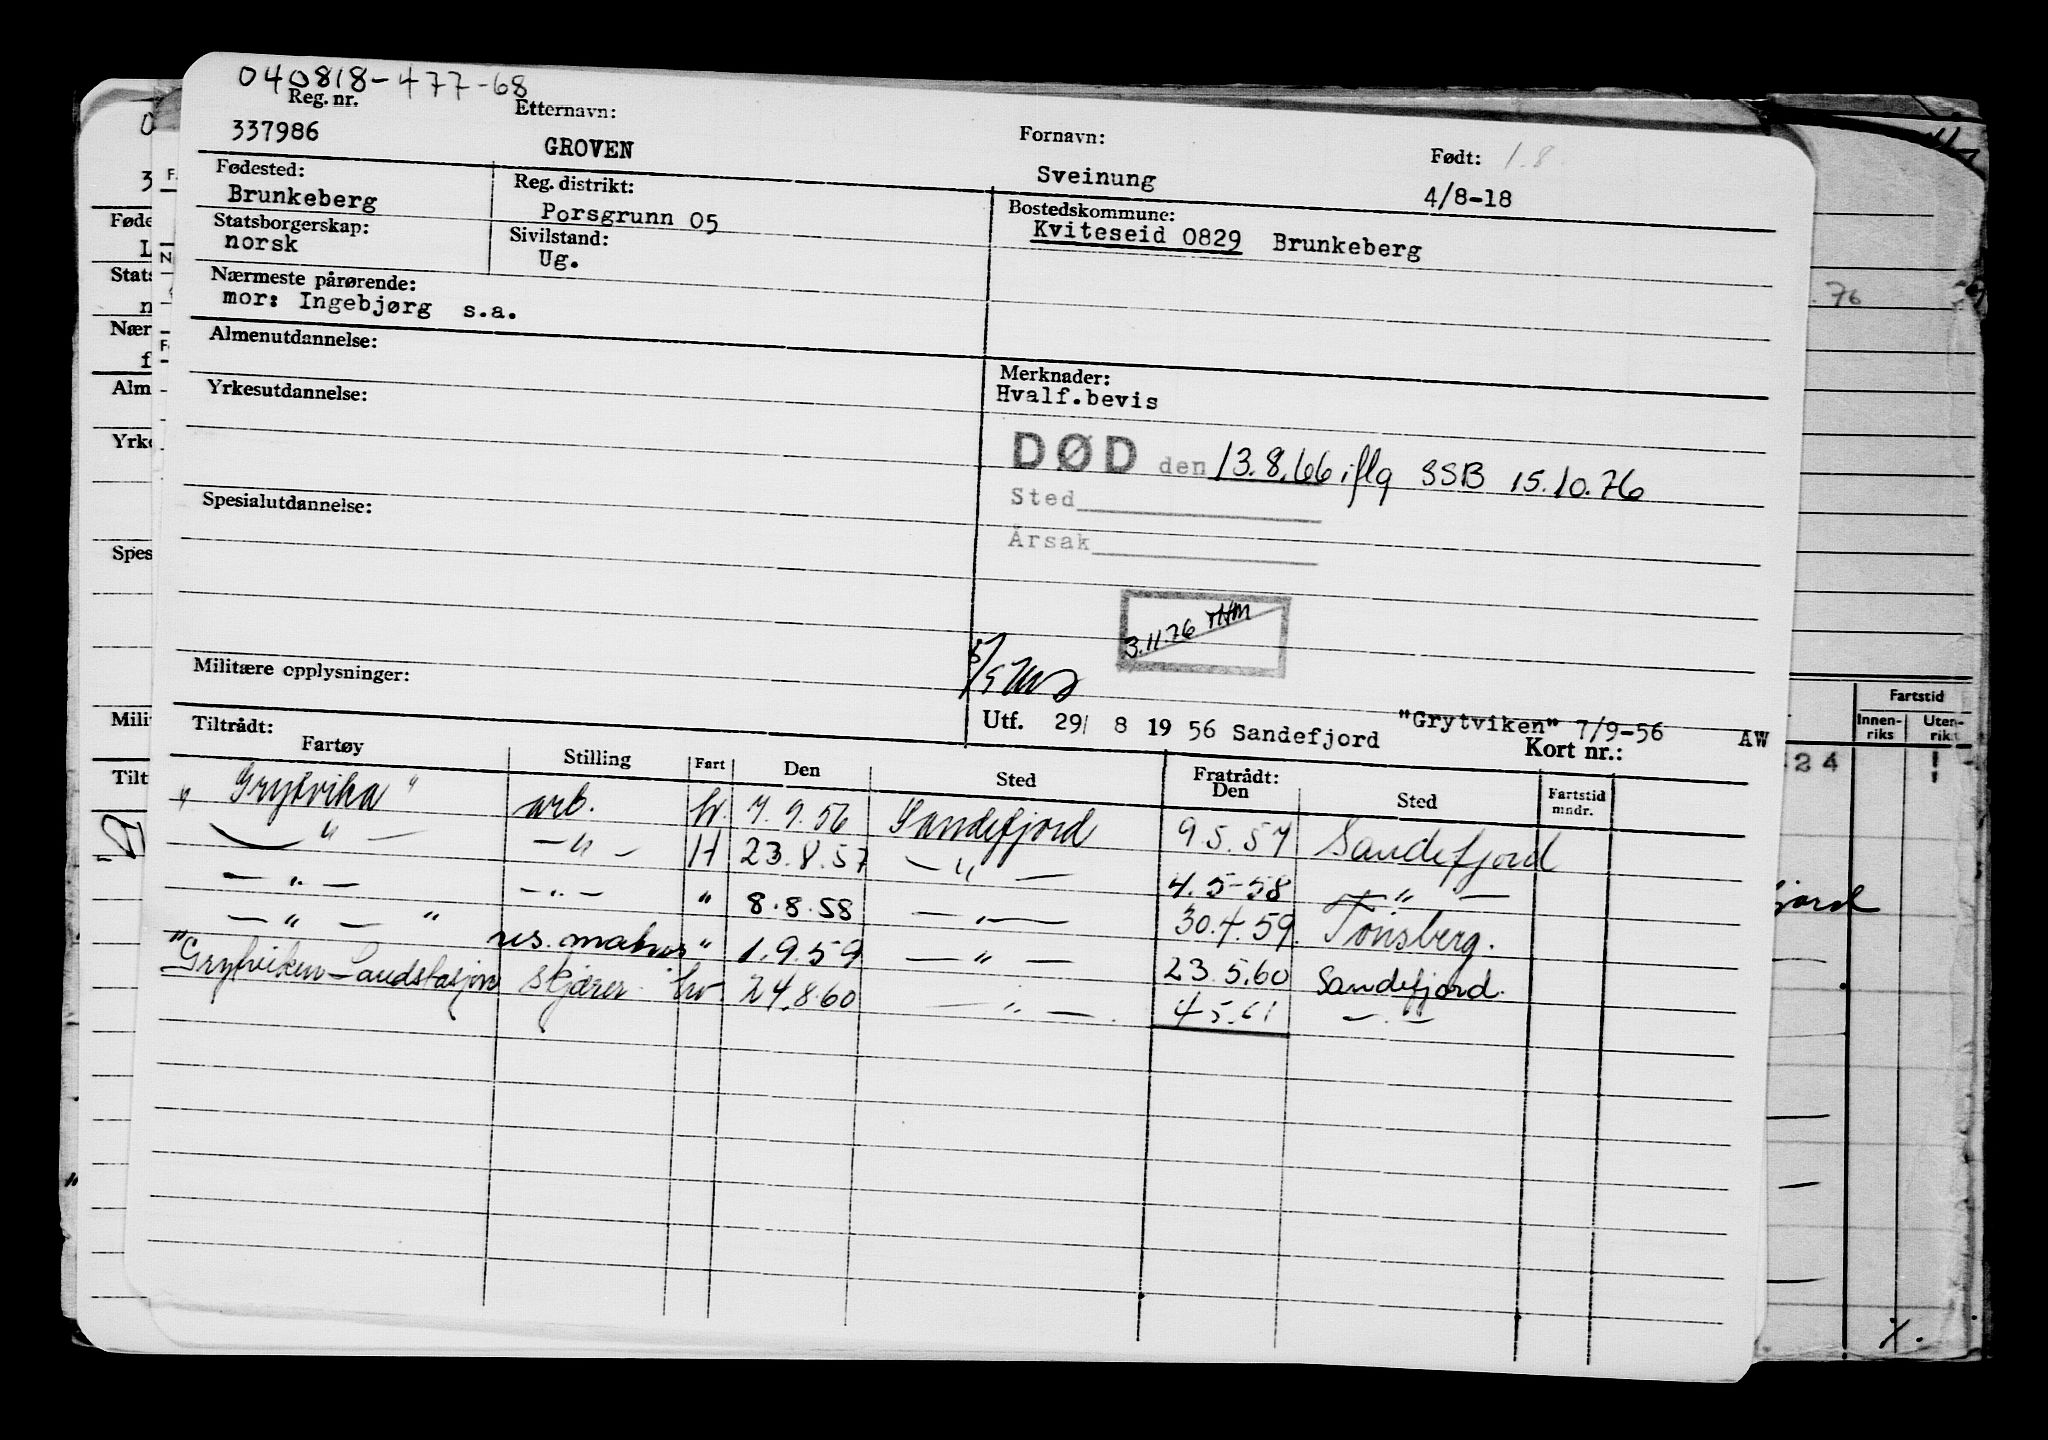 040818-477-68
Reg. nr. Etternavn: Fornavn: Født: 1.8.
337986 GROVEN Sveinung 4/8-18
Fødested: Reg. distrikt: Bostedskommune:
Brunkeberg Porsgrunn 05 Kviteseid 0829 Brunkeberg
Statsborgerskap: Sivilstand:
norsk Ug.
Nærmeste pårørende:
mor: Ingebjørg s.a.
Almenutdannelse:
Merknader:
Yrkesutdannelse: Hvalf.bevis
DØD den 13.8.66 iflg SSB 15.10.76
Spesialutdannelse: Sted
Årsak
3.11.76
Militære opplysninger:
Utf. 29/ 8 19 56 Sandefjord "Grytviken" 7/9-56 AW
Kort nr.:
Tiltrådt: Fratrådt:
Fartøy Stilling Fart Den Sted Den Sted Fartstid mndr.
"Grytvika" arb. hv. 7.9.56 Sandefjord 9.5.57 Sandefjord
— " — — " — H 23.8.57 — " — 4.5-58 — " —
— " — — " — " 8.8.58 — " — 30.4.59. Tønsberg.
— " — " res. matros " 1.9.59 — " — 23.5.60 Sandefjord.
"Grytviken Landstasjon skjærer hv 24.8.60 — " — . 4.5.61 — " —
Fartstid
Innen-riks Uten-rik
24
.76